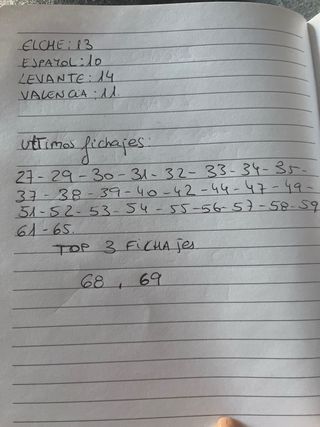 ELCHE: 13
ESPAÑOL: 10
LEVANTE: 14
VALENCIA: 11
Ultimos fichajes:
27-29-30-31-32-33-34-35-
37-38-39-40-42-44-47-49-
51-52-53-54-55-56-57-58-59
61-65.
TOP 3 FICHAjes
68, 69